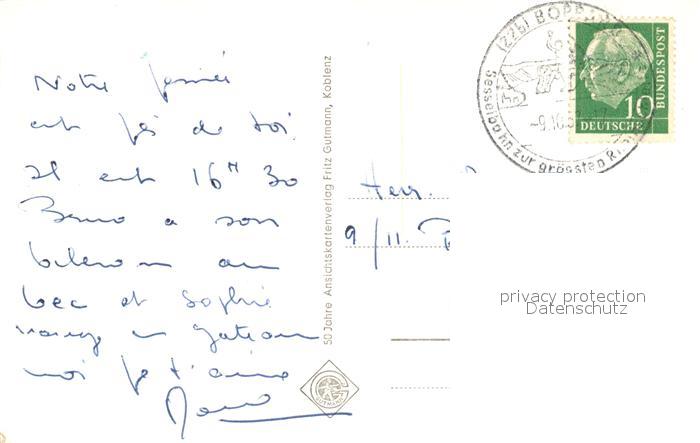 Notre pensée
est près de toi.
Il est 16ʰ 30
Bruno a son
biberon au
bec et Sophie
mange un gateau
moi je t'aime
50 Jahre Ansichtskartenverlag Fritz Gutmann, Koblenz
GUTMANN
Herr.
9/11.
(22b) BOPPARD
Sesselbahn zur grössten Rh
-9.10.
10
DEUTSCHE
BUNDESPOST
privacy protection
Datenschutz